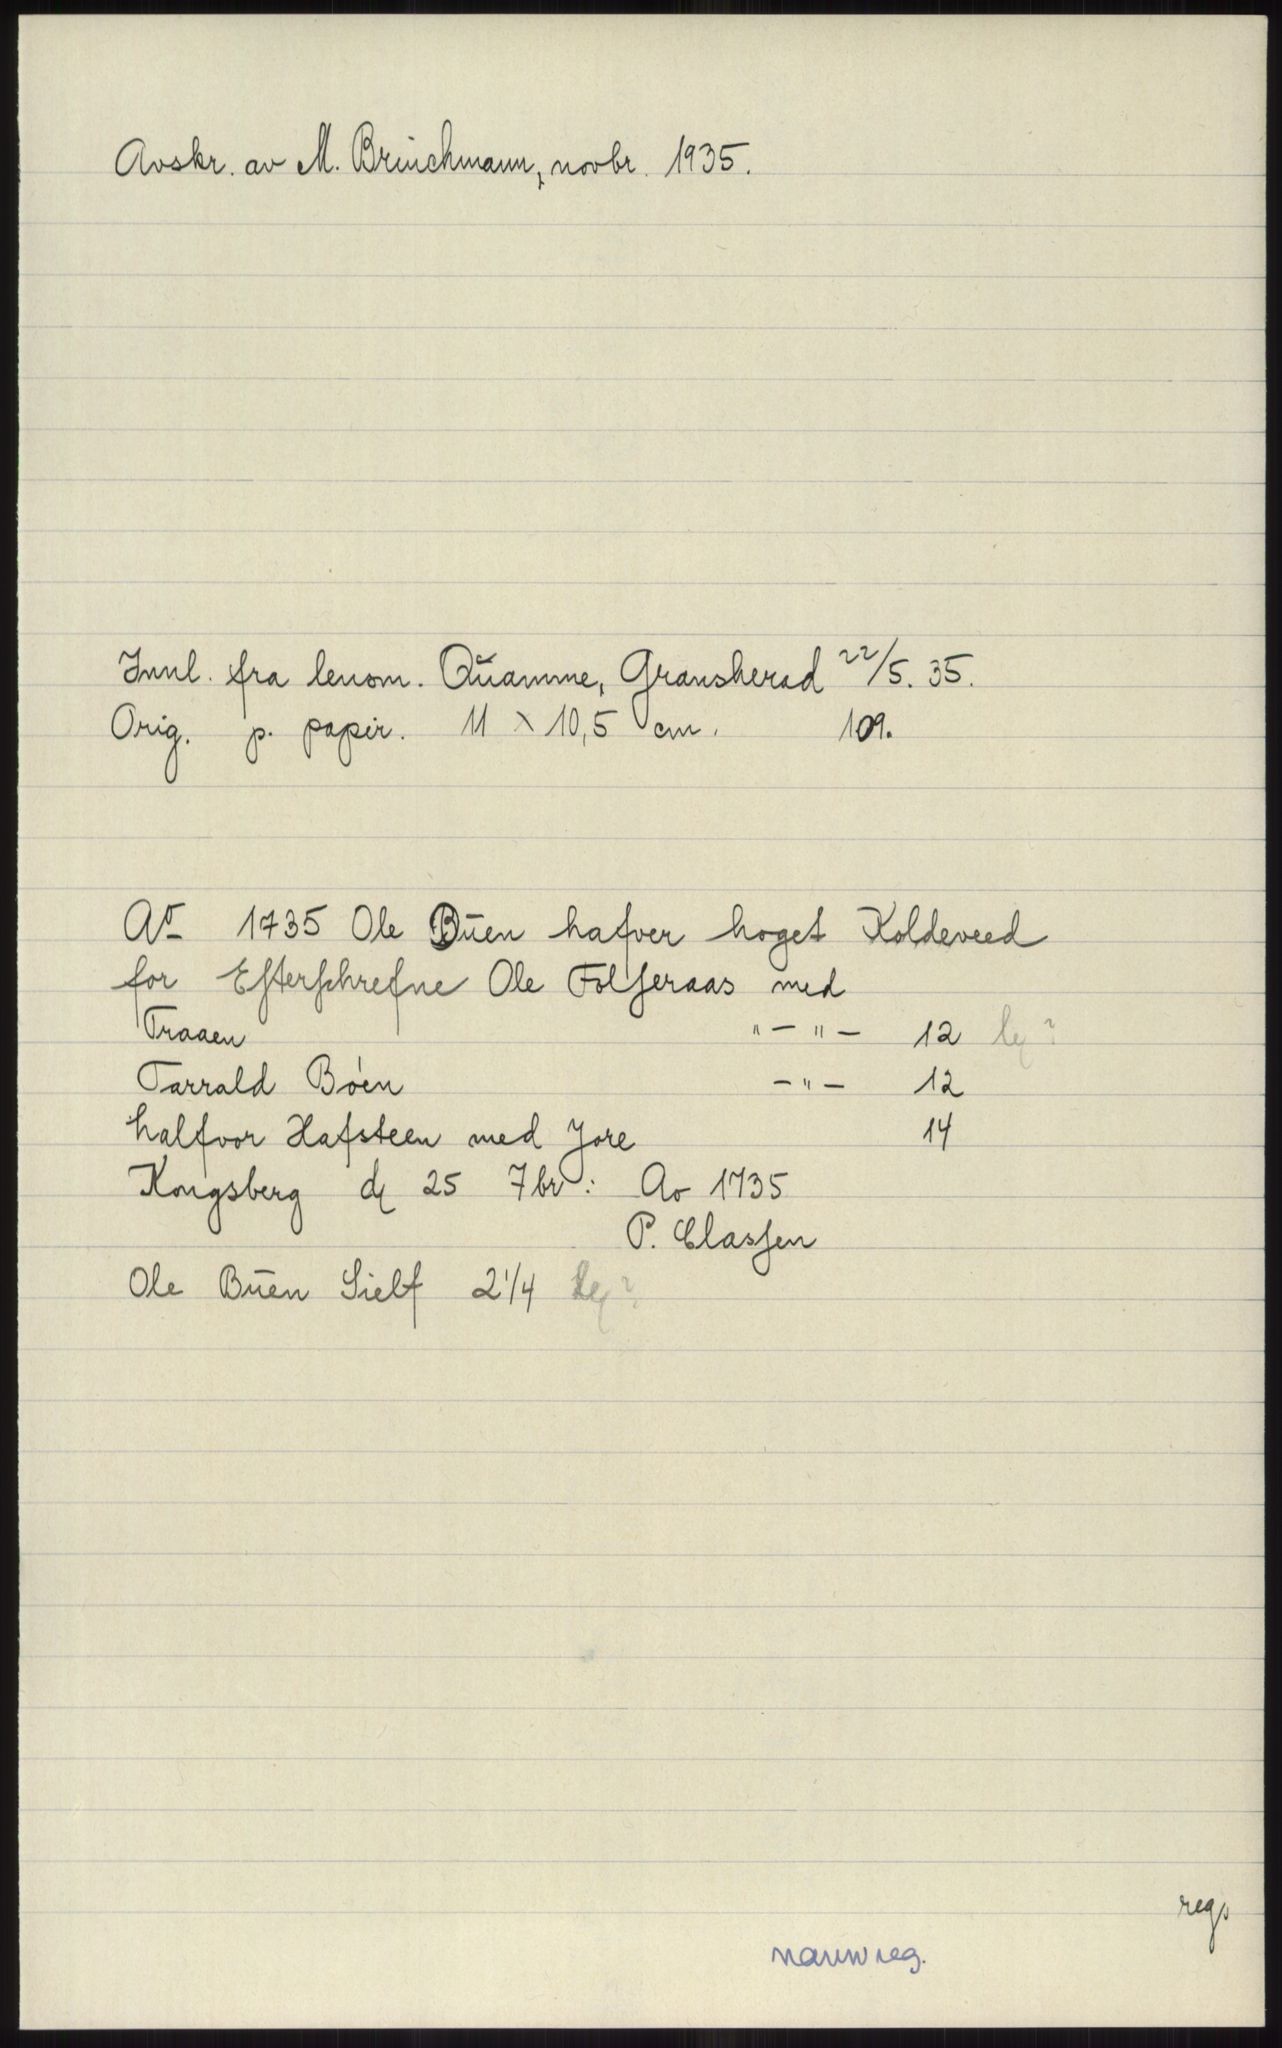 Avskr. av M. Brinchmann, novbr. 1935.
Innl. fra lensm. Qŭamme, Gransherad 22/5. 35.
Orig. p. papir. 11 × 10,5 cm. 109.
Ao 1735 Ole Būen hafver hoget Koldeveed
for Efterschrefne Ole Folseraas med
Traaen " — " — 12
Tarrald Böen — " — 12
halfvor Hafsteen med Jore 14
Kongsberg d 25 7br: Ao 1735
P. Classen
Ole Būen Sielf 2 1/4
reg.
navnreg.